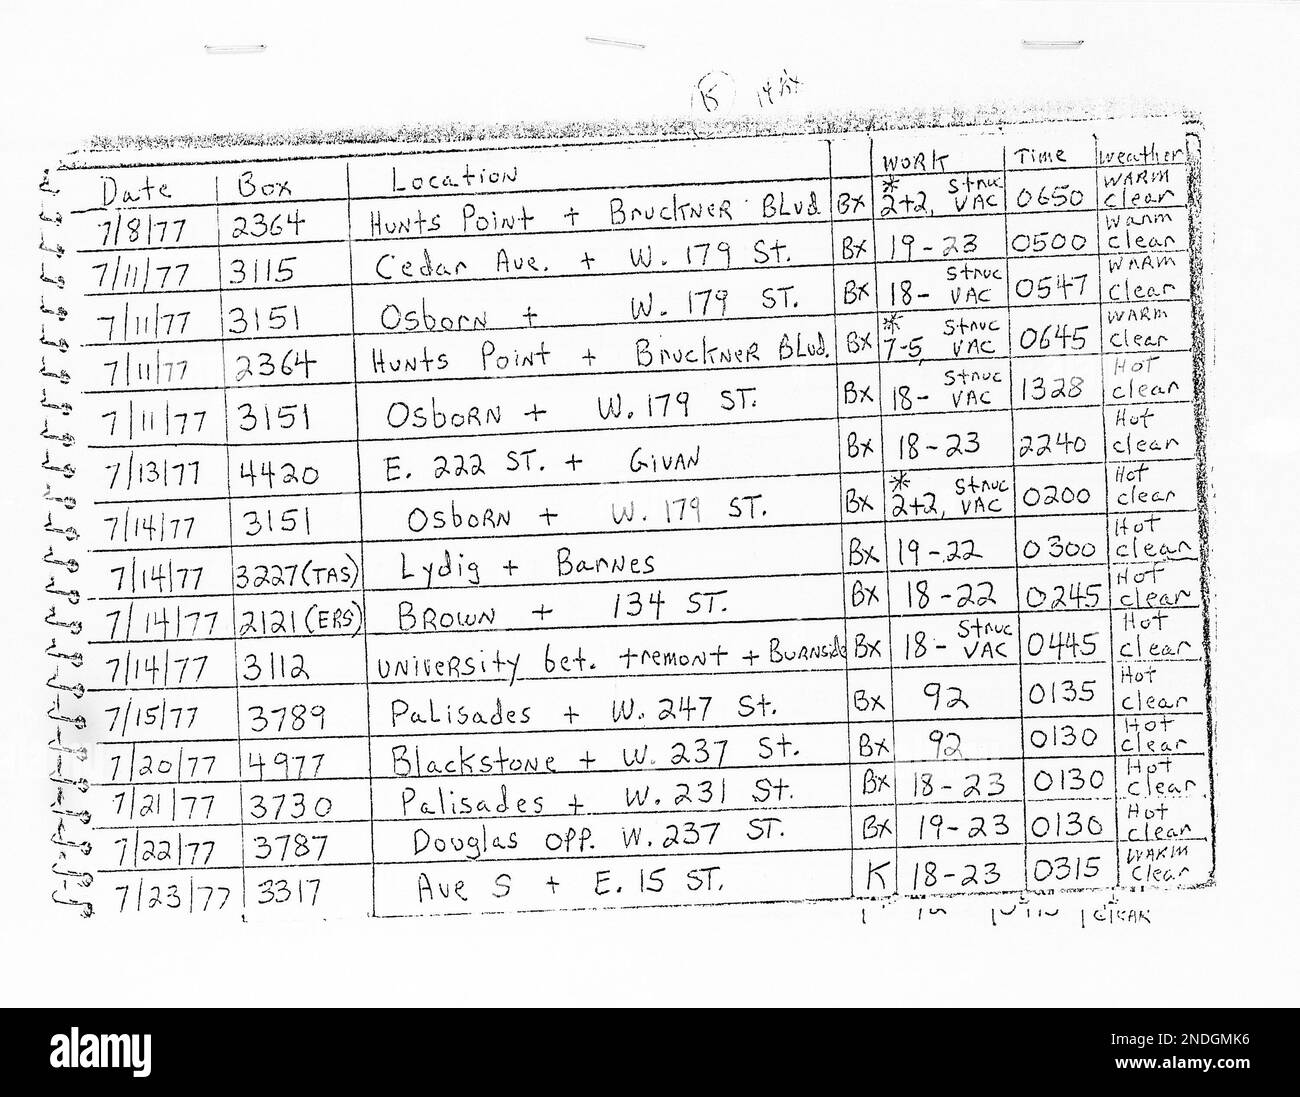 Date Box Location WORK Time Weather
7/8/77 2364 HUNTS POINT + BRUCKNER BLVD. Bx * 2+2, Struc VAC 0650 WARM clear
7/11/77 3115 Cedar Ave. + W. 179 St. Bx 19-23 0500 Warm clear
7/11/77 3151 OSBORN + W. 179 ST. Bx 18- Struc VAC 0547 WARM clear
7/11/77 2364 HUNTS POINT + BRUCKNER BLVD. Bx * 7-5, Struc VAC 0645 WARM clear
7/11/77 3151 OSBORN + W. 179 ST. Bx 18- Struc VAC 1328 Hot clear
7/13/77 4420 E. 222 ST. + GIVAN Bx 18-23 2240 Hot clear
7/14/77 3151 OSBORN + W. 179 ST. Bx * 2+2, Struc VAC 0200 Hot clear
7/14/77 3227(TAS) Lydig + BARNES Bx 19-22 0300 Hot clear
7/14/77 2121(ERS) BROWN + 134 ST. Bx 18-22 0245 Hot clear
7/14/77 3112 UNIVERSITY bet. tremont + BURNSide Bx 18- Struc VAC 0445 Hot clear
7/15/77 3789 Palisades + W. 247 St. Bx 92 0135 Hot clear
7/20/77 4977 Blackstone + W. 237 St. Bx 92 0130 Hot clear
7/21/77 3730 Palisades + W. 231 St. Bx 18-23 0130 Hot clear
7/22/77 3787 Douglas OPP. W. 237 ST. Bx 19-23 0130 Hot clear
7/23/77 3317 Ave S + E. 15 ST. K 18-23 0315 WARM clear
alamy
Image ID: 2NDGMK6
www.alamy.com